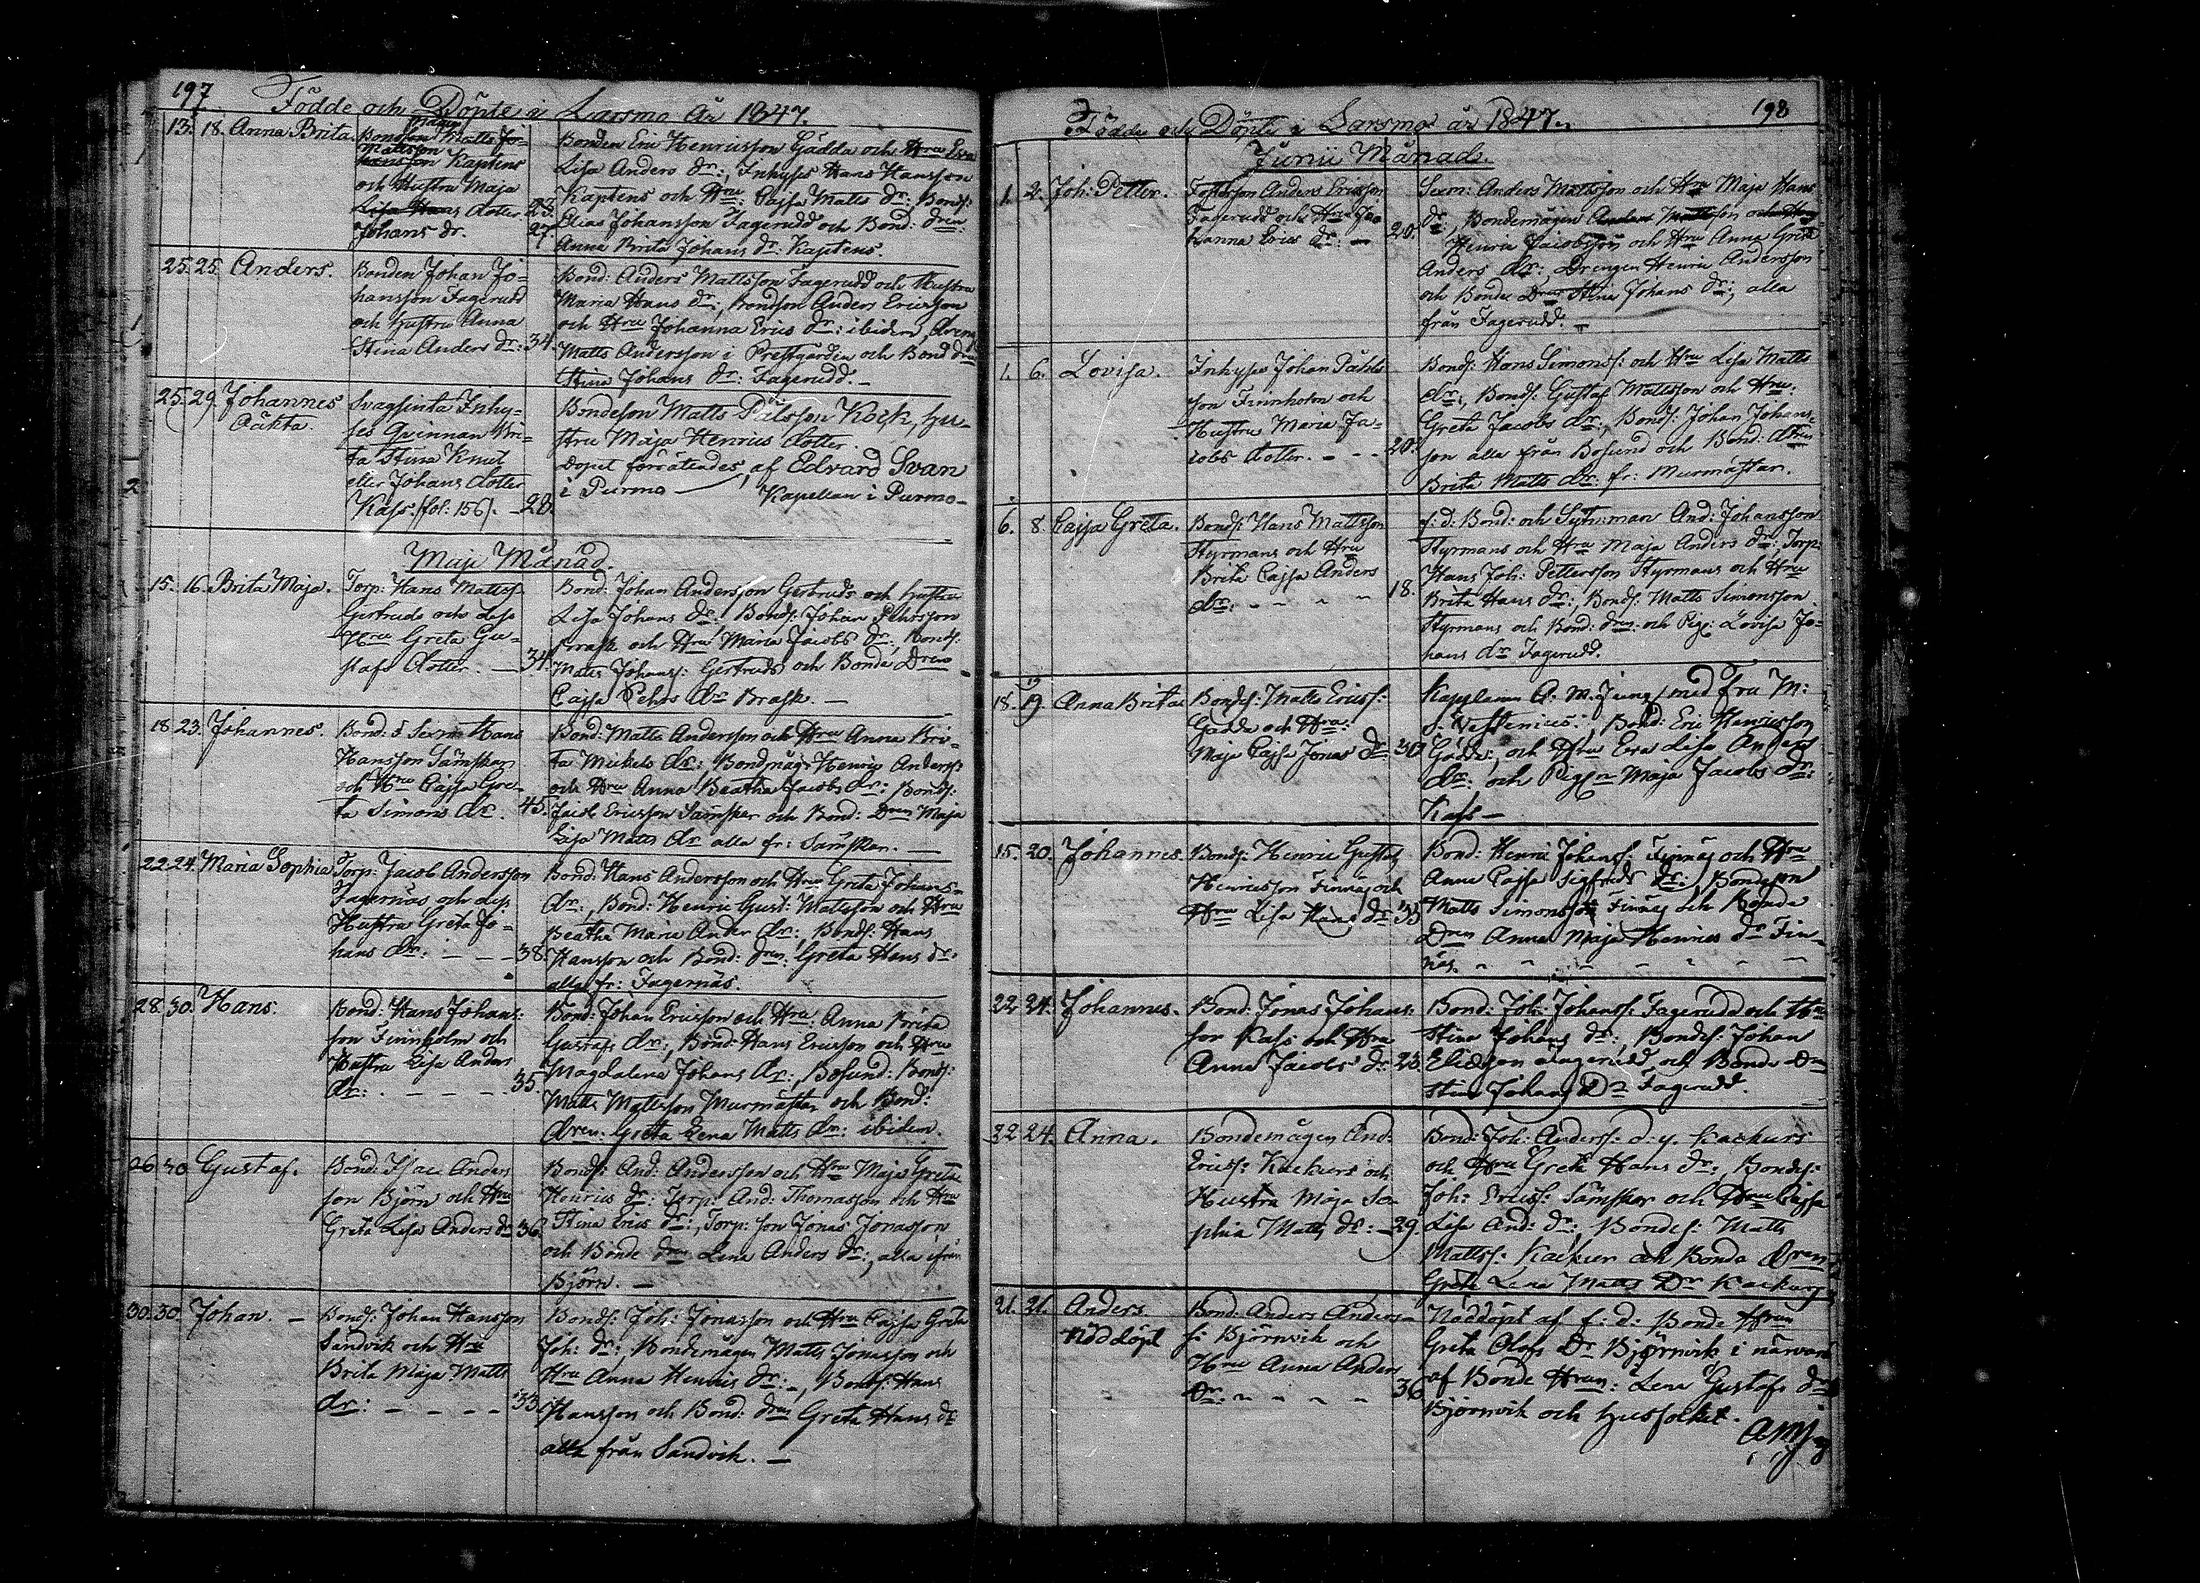 197
Födde och Döpte i Larsmo År 1847.
13. 18. Anna Brita. Bondson Matts Jo-
Mattsson
hansson Kaptens
och Hustru Maja
Lisa Hans dotter 23.
Johans dr. 27.
Bonden Eric Henricsson Gädda och Hru Eva
Lisa Anders dr:, Inhyses Hans Hansson
Kaptens och Hru: Cajsa Matts dr: Bonds:
Elias Johansson Fagerudd och Bond: dren:
Anna Brita Johans dr: Kaptens.
25. 25. Anders. Bonden Johan Jo-
hansson Fagerudd
och Hustru Anna
Stina Anders dr: 34.
Bond: Anders Mattsson Fagerudd och Hustru
Maria Hans dr:, Bondson Anders Ericsson
och Hru Johanna Erics dr: ibidem, Dreng
Matts Andersson i Prestgården och Bond dren
Stina Johans dr: Fagerudd. —
25. 29. Johannes
Oäkta.
Svagsinta Inhy-
ses Qvinnan Bri-
ta Stina Knut
eller Johans dotter
Kass. /fol: 156/. — 20.
Bondeson Matts Pålsson Kock, Hu-
stru Maja Henrics dotter.
Dopet förrättades af Edvard Svan
i Purmo — Kapellan i Purmo —
Maji Månad.
15. 16. Brita Maja. Torp: Hans Mattss:
Gertruds och dess
Hru Greta Gu-
stafs dotter. — 34.
Bond: Johan Andersson Gertruds och hustru
Lisa Johans dr:, Bonds: Johan Pehrsson
Brask och Hru Maria Jacobs dr:, Bonds:
Matts Johanss: Gertruds och Bonde Dren
Cajsa Pehrs dr Brask. —
18. 23. Johannes. Bond: o Sexm Hans
Hansson Sämskar
och Hru Cajsa Gre-
ta Simons dr. 45.
Bond: Matts Andersson och Hru Anna Bri-
ta Mickels dr: Bondmåg: Henric Anderss:
och Hru Anna Beatha Jacobs dr: Bonds:
Jacob Ericsson Sämskar och Bond: Dren Maja
Lisa Matts dr alla fr: Sämskar. —
22. 24. Maria Sophia Torp: Jacob Andersson
Fagernäs och dess
Hustru Greta Jo-
hans dr: — — 38.
Bond: Hans Andersson och Hru Greta Johans
dr:, Bond: Henric Gust: Mattsson och Hru
Beatha Maria Anders dr:, Bonds: Hans
Hansson och Bond: dren: Greta Hans dr:
alla fr: Fagernäs.
28. 30. Hans. Bond: Hans Johans:
son Finnholm och
Hustru Lisa Anders
dr: — — — 35.
Bond: Johan Ericsson och Hru: Anna Brita
Gustafs dr:, Bond: Hans Ericsson och Hru
Magdalena Johans dr:, Bosund: Bonds:
Matts Mattsson Murmästar och Bond:
dren: Greta Lena Matts dr: ibidem.
26. 30. Gustaf. Bond: Isac Anders
son Björn och Hru
Greta Lisa Anders dr 36.
Bonds: And: Andersson och Hru Maja Greta
Henrics dr: Torp: And: Thomasson och Hru
Stina Erics dr:, Torp: son Jonas Jonasson
och Bonde dren Lena Anders dr:, alla ifrån
Björn. —
30. 30. Johan. — Bonds: Johan Hansson
Sandvik och Hru
Brita Maja Matts
dr: — — — — 33.
Bonds: Joh: Jonasson och Hru Cajsa Greta
Joh: dr:, Bondemågen Matts Jonasson och
Hru Anna Henrics dr:, Bonds: Hans
Hansson och Bond: dren Greta Hans dr
alla från Sandvik. —
198
Födde och Döpte i Larsmo år 1847.
Junii Månad.
1. 2. Joh: Petter. Anders Ericsson
Fagerudd och Hru Jo-
hanna Erics dr: — 20.
Sexm: Anders Mattsson och Hru Maja Hans
dr:, Bondemågen Anders Mattsson och Hru
Henric Jacobsson och Hru Anna Greta
Anders dr:, Drengen Henric Andersson
och Bonde Dren Stina Johans dr:, alla
från Fagerudd. —
1. 6. Lovisa. Inhyses Johan Påhls
son Finnholm och
Hustru Maria Ja-
cobs dotter. — — 20.
Bonds: Hans Simonss: och Hru Lisa Matts
dr:, Bonds: Gustaf Mattsson och Hru:
Greta Jacobs dr:, Bonds: Johan Johans-
son alla från Bosund och Bond: dren
Brita Matts dr: fr: Murmästar.
6. 8. Cajsa Greta. Bonds: Hans Mattsson
Styrmans och Hru
Brita Cajsa Anders
dr: — — — — 18.
f: d: Bond: och And: Johansson
Styrmans och Hru Maja Anders dr:, Torp:
Hans Joh: Pettersson Styrmans och Hru
Brita Hans dr:, Bonds: Matts Simonsson
Styrmans och Bond: dren: och Pig: Lovisa Jo-
hans dr Fagerudd.
18. 19. Anna Brita Bonds: Matts Ericss:
Gädda och Hru:
Maja Cajsa Jonas dr 30.
Kapplanen A. W. Jung med fru M:
f: Westenius:, Bond: Eric Henricsson
Gädda, och Hru Eva Lisa Anders
dr: och Pigan Maja Jacobs dr:
Kass —
15. 20. Johannes. Bonds: Henric Gustaf
Henricsson Finnäs och
Hru Lisa Hans dr 33.
Bond: Henric Johanss: Finnäs och Hru
Anna Cajsa Sigfrids dr:, Bondeson
Matts Simonsson Finnäs och Bonde
Dren Anna Maja Henrics dr Fin-
näs. — — — — — —
22. 24. Johannes. Bond: Jonas Johans:
son Kass och Hru
Anna Jacobs dr: 23.
Bond: Joh: Johanss: Fagerudd och Hru
Stina Johans dr:, Bondes: Johan
Eliasson Fagerudd och Bonde Dren
Stina Johans Dr Fagerudd.
22. 24. Anna. Bondemågen And:
Ericss: Kackurs och
Hustru Maja So-
phia Matts dr: — 29.
Bond: Joh: Anderss: d: y. Kackurs
och Hru Greta Hans dr:, Bondes:
Joh: Ericss: Sämskar och Hru Cajsa
Lisa And: dr:, Bondes: Matts
Mattss: Kackur och Bonde dren
Greta Lena Matts Dr Kackurs
21. 21. Anders
nöddöpt
Bond: Anders Anders-
s: Björnvik och
Hru Anna Anders
Dr: — — — — 36.
Nöddöpt af f: d: Bonde Hrun
Greta Olofs Dr Björnvik i närvaro
af Bonde Hrun: Lena Gustafs dr
Björnvik och husfolket.